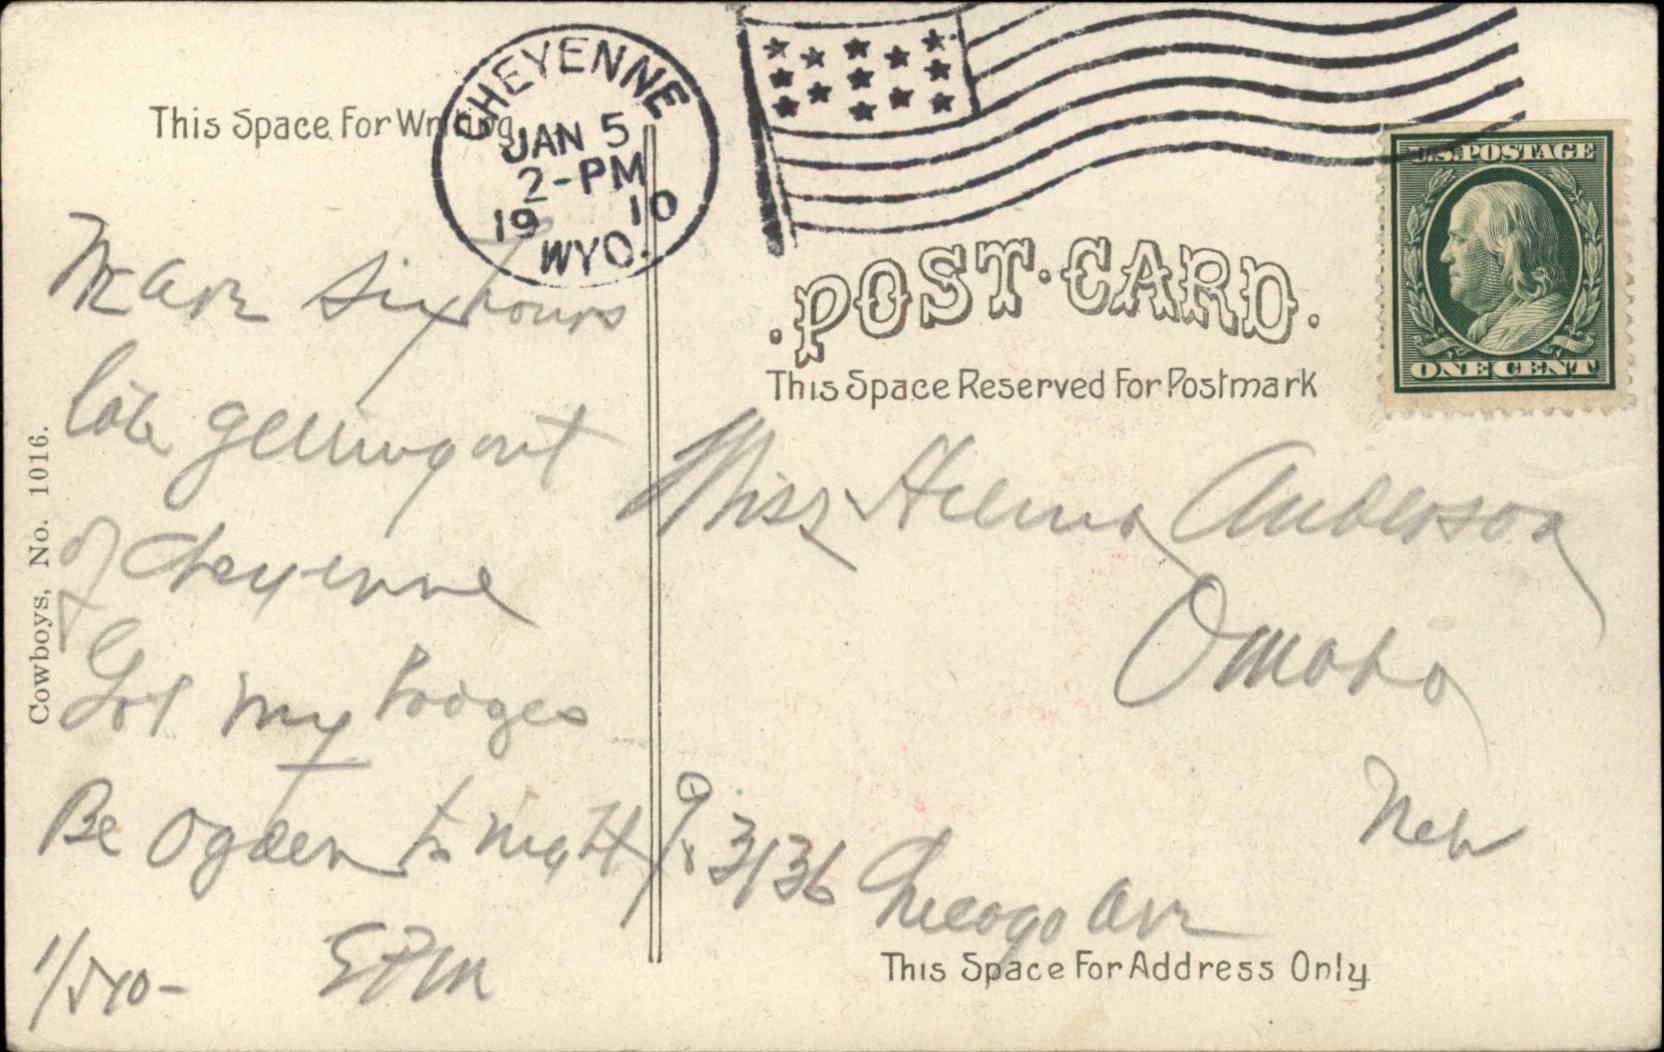 CHEYENNE
JAN 5
2-PM
1910
WYO.
U.S. POSTAGE
ONE CENT
This Space For Writing
POST CARD
This Space Reserved For Postmark
six hours
late getting out
of Cheyenne
Got my
Be Ogden to night
1/5/10-
EPM
Cowboys, No. 1016.
Miss Helma Anderson
Omaha
Neb
% 3136 Chicago Ave
This Space For Address Only